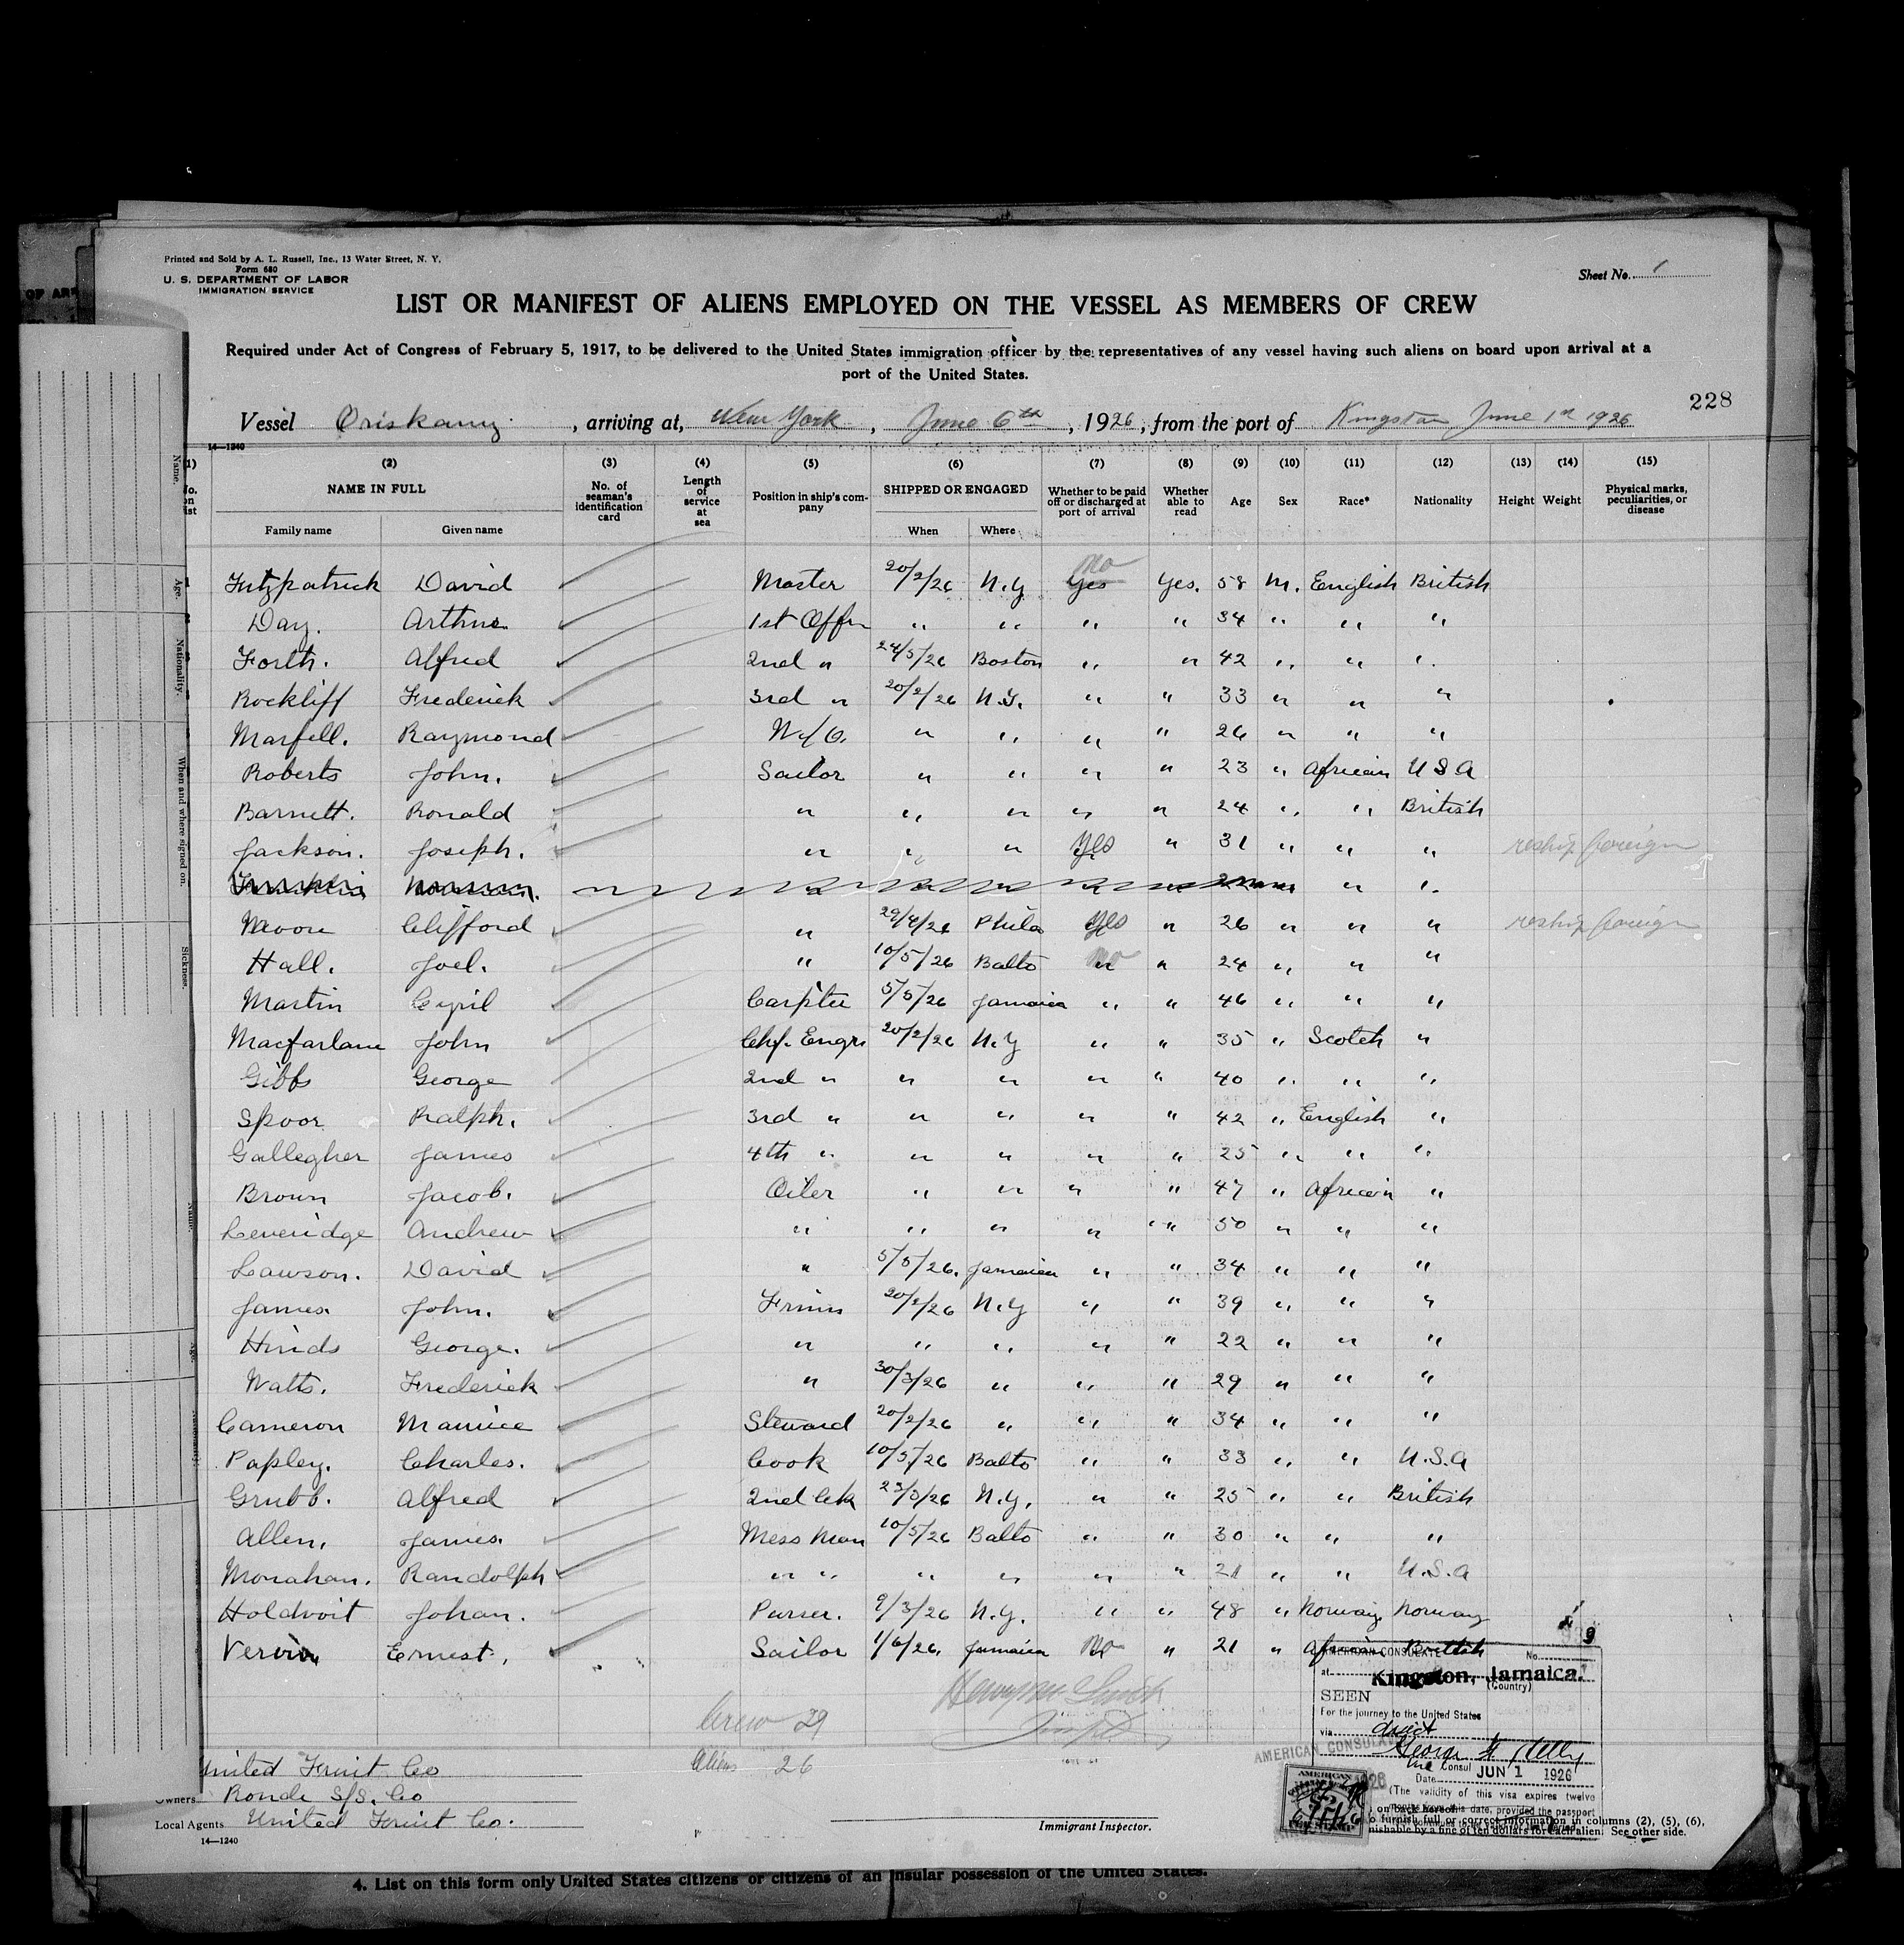 OF AR
Printed and Sold by A. L. Russell, Inc., 13 Water Street, N. Y.
Form 680
U. S. DEPARTMENT OF LABOR
IMMIGRATION SERVICE
Sheet No. 1
LIST OR MANIFEST OF ALIENS EMPLOYED ON THE VESSEL AS MEMBERS OF CREW
Required under Act of Congress of February 5, 1917, to be delivered to the United States immigration officer by the representatives of any vessel having such aliens on board upon arrival at a
port of the United States.
228
Vessel Oriskany, arriving at, New York, June 6th, 1926, from the port of Kingston June 1st 1926
14—1240
(1) (2) (3) (4) (5) (6) (7) (8) (9) (10) (11) (12) (13) (14) (15)
No. on list NAME IN FULL Family name Given name No. of seaman's identification card Length of service at sea Position in ship's company SHIPPED OR ENGAGED When Where Whether to be paid off or discharged at port of arrival Whether able to read Age Sex Race* Nationality Height Weight Physical marks, peculiarities, or disease
No
Fitzpatrick David Master 20/2/26 N.Y Yes Yes. 58 M. English British
Day. Arthur 1st Offr " " " " 34 " " "
Forth. Alfred 2nd " 24/5/26 Boston " " 42 " " "
Rockliff Frederick 3rd " 20/2/26 N.Y. " " 33 " " "
Marfell. Raymond W/O. " " " " 26 " " "
Roberts John. Sailor " " " " 23 " African U S A
Barnett. Ronald " " " " " 24 " " British
Jackson. Joseph. " " " Yes " 31 " " " reship foreign
" " " " " " " "
Moore Clifford " 29/4/26 Phila Yes " 26 " " " reship foreign
Hall. Joel. " 10/5/26 Balto No " 24 " " "
Martin Cyril Carpter 5/5/26 Jamaica " " 46 " " "
Macfarlane John Chf. Engr. 20/2/26 N.Y " " 35 " Scotch "
Gibbs George 2nd " " " " " 40 " " "
Spoor Ralph. 3rd " " " " " 42 " English "
Gallegher James 4th " " " " " 25 " " "
Brown Jacob. Oiler " " " " 47 " African "
Leveridge Andrew " " " " " 50 " " "
Lawson. David " 5/5/26. Jamaica " " 34 " " "
James. John. 20/2/26 N.Y " " 39 " " "
Hinds George. " " " " " 22 " " "
Watts. Frederick " 30/3/26 " " " 29 " " "
Cameron Maurice Steward 20/2/26 " " " 34 " " "
Papley. Charles. Cook 10/5/26 Balto " " 33 " " U.S.A
Grubb. Alfred 2nd Ck 23/3/26 N.Y. " " 25 " " British
Allen, James. Mess Man 10/5/26 Balto " " 30 " " "
Monahan. Randolph " " " " " " 21 " " U.S.A
Holdvoit Johan. Purser. 9/3/26 N.Y. " " 48 " Norway. Norway
Ernest, Sailor 1/6/26. Jamaica No " 21 " African British
Crew 29
Aliens 26
AMERICAN CONSULATE No.
at Kingston, Jamaica.
(Country)
SEEN
For the journey to the United States
via direct
Consul
Date JUN 1 1926
(The validity of this visa expires twelve
months from this date, provided the passport
AMERICAN CONSULATE
United Fruit Co
Owners Ronde S/S. Co
Local Agents United Fruit Co.
14—1240
Immigrant Inspector.
on back hereof
furnish full or correct information in columns (2), (5), (6),
ishable by a fine of ten dollars for each alien. See other side.
4. List on this form only United States citizens or citizens of an insular possession of the United States.
Name.
Age.
Nationality.
When and where signed on.
Sickness.
Name.
Age.